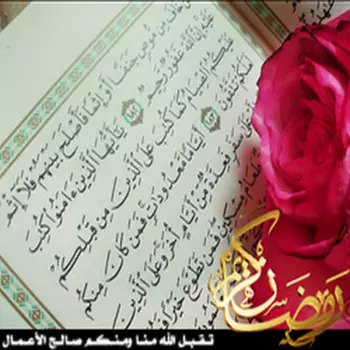 خاف من موص جنفا أو إثما فأصلح بينهم فلا إثم
عليه إن الله غفور رحيم ١٨٢ يأيها الذين ءامنوا كتب
عليكم الصيام كما كتب على الذين من قبلكم
لعلكم تتقون ١٨٣ أياما معدودات فمن كان منكم
على سفر فعدة من أيام أخر وعلى الذين
طعام مسكين فمن تطوع خيرا
رمضان كريم
تقبل الله منا ومنكم صالح الأعمال